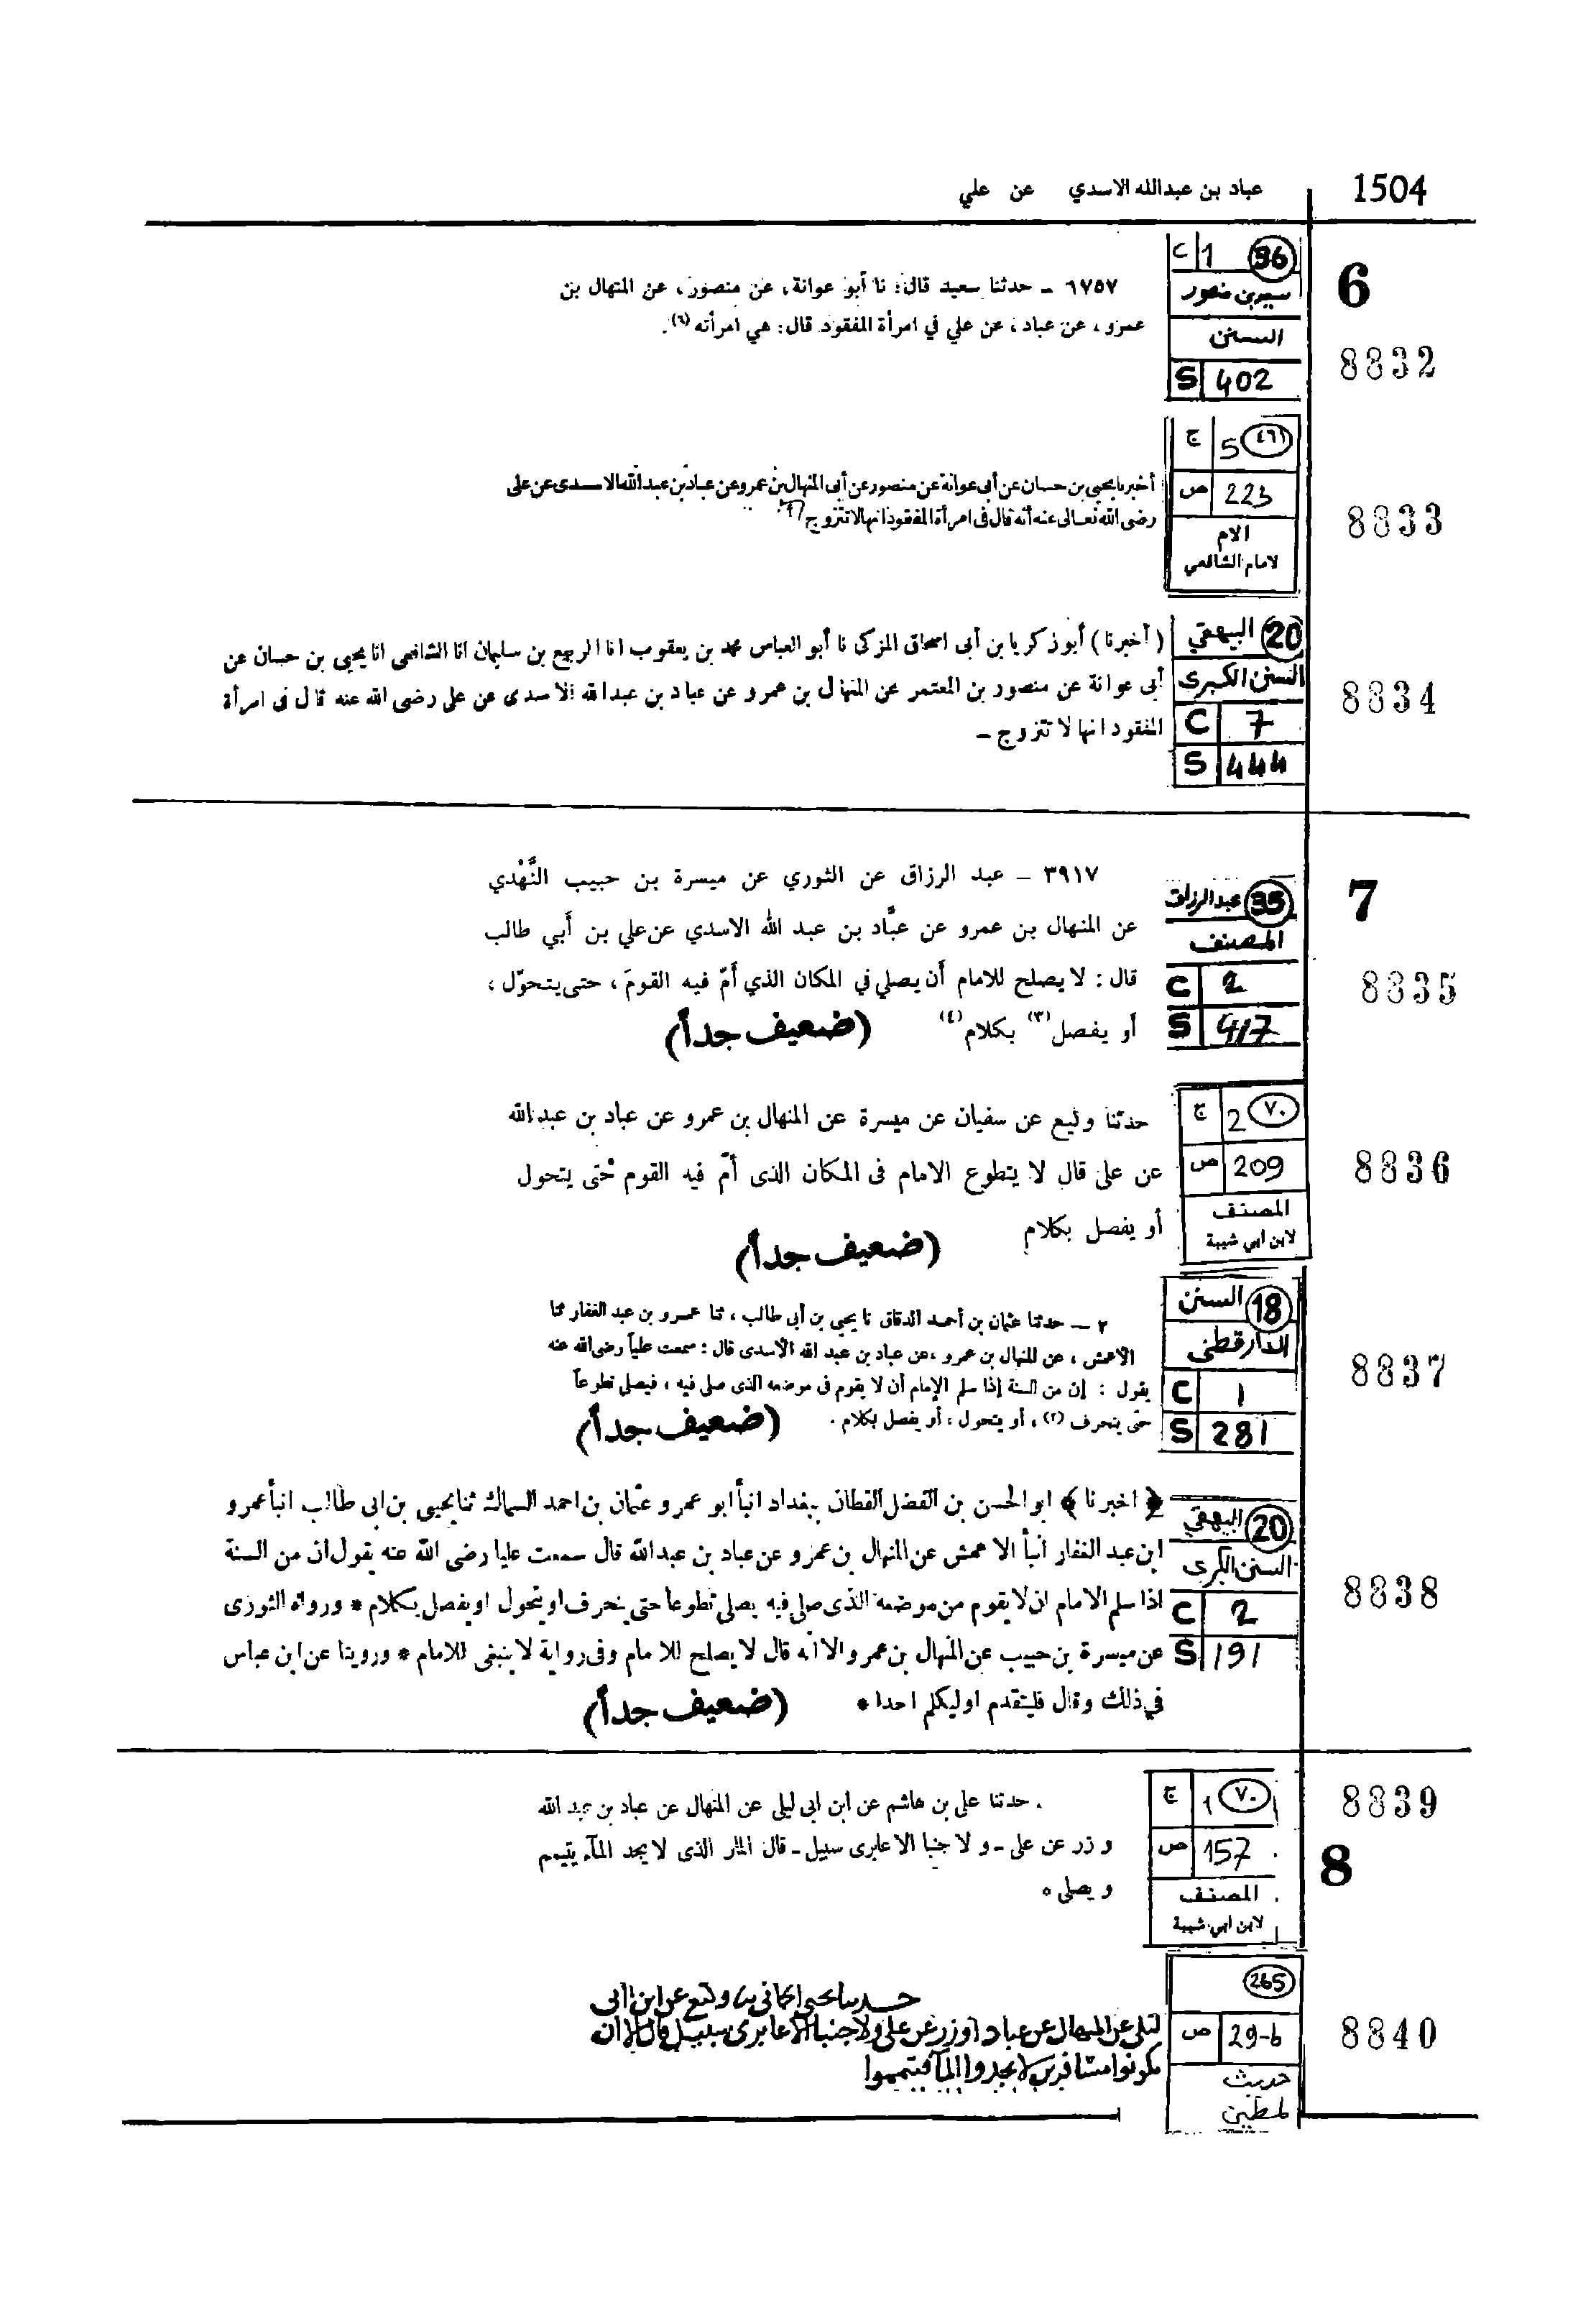 1504
عباد بن عبدالله الاسدي عن علي
6
8832
36 1 C
سعيد بن منصور
السنن
S 402
١٧٥٧ – حدثنا سعيد قال: نا أبو عوانة، عن منصور، عن المنهال بن
عمرو، عن عباد، عن علي في امرأة المفقود قال: هي امرأته (٦).
8833
(٤٦) 5 ج
223 ص
الام
لامام الشافعي
أخبرنا يحيى بن حسان عن أبى عوانة عن منصور عن أبى المنهال بن عمرو عن عباد بن عبد الله الاسدى عن على
رضى الله تعالى عنه أنه قال فى امرأة المفقود انها لا تتزوج
8834
20 البيهقي
السنن الكبرى
C 7
S 444
(أخبرنا) أبو زكريا بن أبى اسحاق المزكى نا أبو العباس محمد بن يعقوب انا الربيع بن سليمان انا الشافعى انا يحيى بن حسان عن
أبى عوانة عن منصور بن المعتمر عن المنهال بن عمرو عن عباد بن عبدالله الاسدى عن على رضى الله عنه قال فى امرأة
المفقود انها لا تتزوج –
7
8835
35 عبدالرزاق
المصنف
C 2
S 417
٣٩١٧ – عبد الرزاق عن الثوري عن ميسرة بن حبيب النَّهْدي
عن المنهال بن عمرو عن عبَّاد بن عبد الله الاسدي عن علي بن أَبي طالب
قال : لا يصلح للامام أَن يصلي في المكان الذي أَمّ فيه القومَ ، حتى يتحوّل ،
أو يفصل (٣) بكلام (٤)
(ضعيف جداً)
8836
(٧٠) 2 ج
209 ص
المصنف
لابن ابي شيبة
حدثنا وكيع عن سفيان عن ميسرة عن المنهال بن عمرو عن عباد بن عبدالله
عن على قال لا يتطوع الامام فى المكان الذى أمّ فيه القوم حتى يتحول
أو يفصل بكلام
(ضعيف جداً)
8837
18 السنن
الدارقطني
C 1
S 281
٢ – حدثنا عثمان بن أحمد الدقاق نا يحيى بن أبى طالب ، ثنا عمرو بن عبد الغفار ثنا
الأعمش ، عن المنهال بن عمرو ، عن عباد بن عبد الله الأسدى قال : سمعت علياً رضى الله عنه
يقول : إن من السنة إذا سلم الإمام أن لا يقوم فى موضعه الذى صلى فيه ، فيصلى تطوعاً
حتى ينحرف (٢) ، أو يتحول ، أو يفصل بكلام .
(ضعيف جداً)
8838
20 البيهقي
السنن الكبرى
C 2
S 191
﴿ اخبرنا ﴾ ابو الحسن بن الفضل القطان ببغداد انبأ ابو عمرو عثمان بن احمد السماك ثنا يحيى بن ابى طالب انبأ عمرو
ابن عبد الغفار انبأ الاعمش عن المنهال بن عمرو عن عباد بن عبدالله قال سمعت عليا رضى الله عنه يقول ان من السنة
اذا سلم الامام ان لا يقوم من موضعه الذى صلى فيه يصلى تطوعا حتى ينحرف او يتحول او يفصل بكلام * ورواه الثورى
عن ميسرة بن حبيب عن المنهال بن عمرو الا انه قال لا يصلح للامام وفى رواية لا ينبغى للامام * وروينا عن ابن عباس
في ذلك وقال فليتقدم او ليكلم احدا *
(ضعيف جداً)
8839
8
(٧٠) 1 ج
157 ص
المصنف
لابن ابي شيبة
. حدثنا على بن هاشم عن ابن ابى ليلى عن المنهال عن عباد بن عبد الله
و زر عن على – و لا جنبا الا عابرى سبيل – قال المار الذى لا يجد المآء يتيمم
و يصلى *
8840
265
29-b ص
حديث
لمطين
حدثنا يحيى الحماني نا وكيع عن ابن ابي
ليلى عن المنهال عن عباد او زر عن علي ولا جنبا الا عابري سبيل قال الا ان
تكونوا مسافرين لا تجدوا المآ فتيمموا